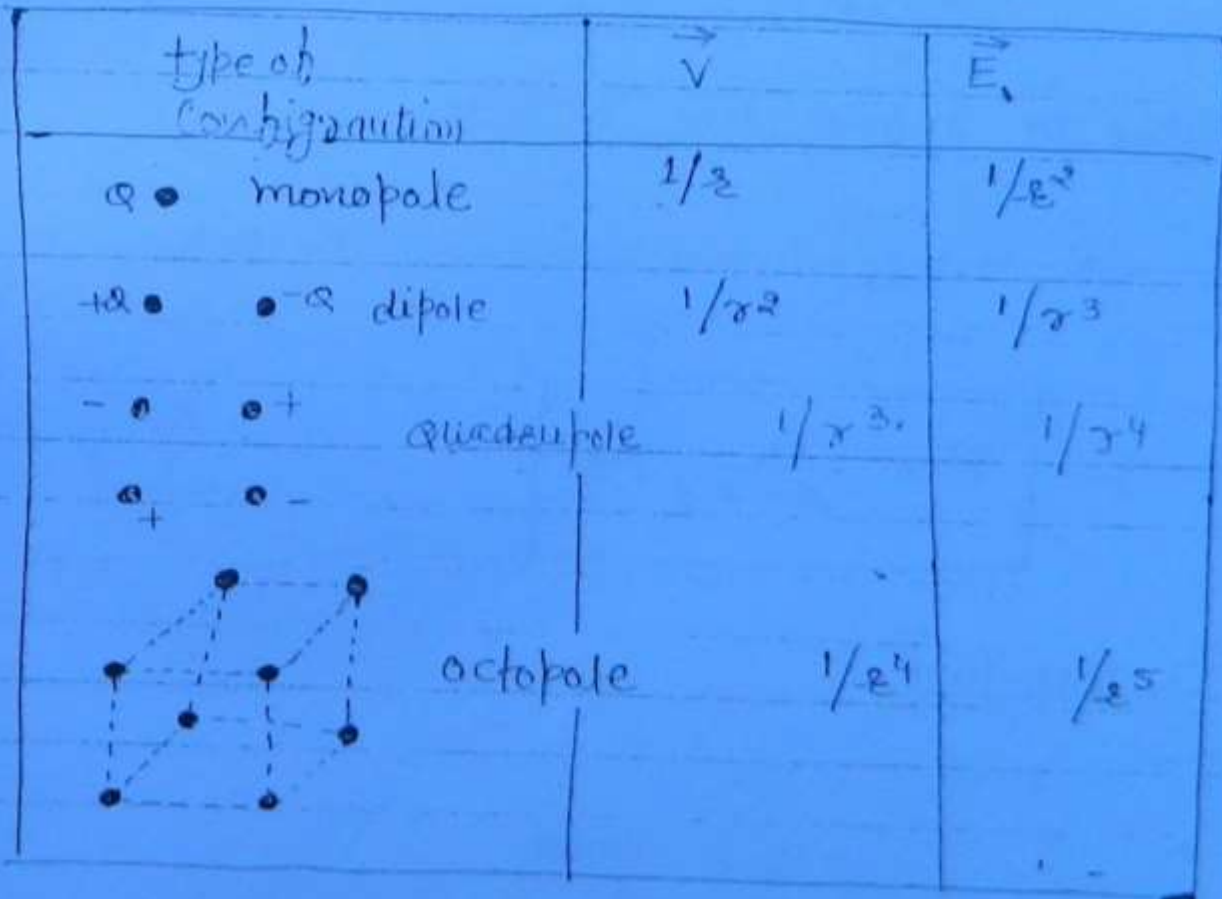 type of configuration V E
Q monopole 1/r 1/r²
+Q -Q dipole 1/r² 1/r³
- +
Quadrupole 1/r³. 1/r⁴
+ -
octopole 1/r⁴ 1/r⁵